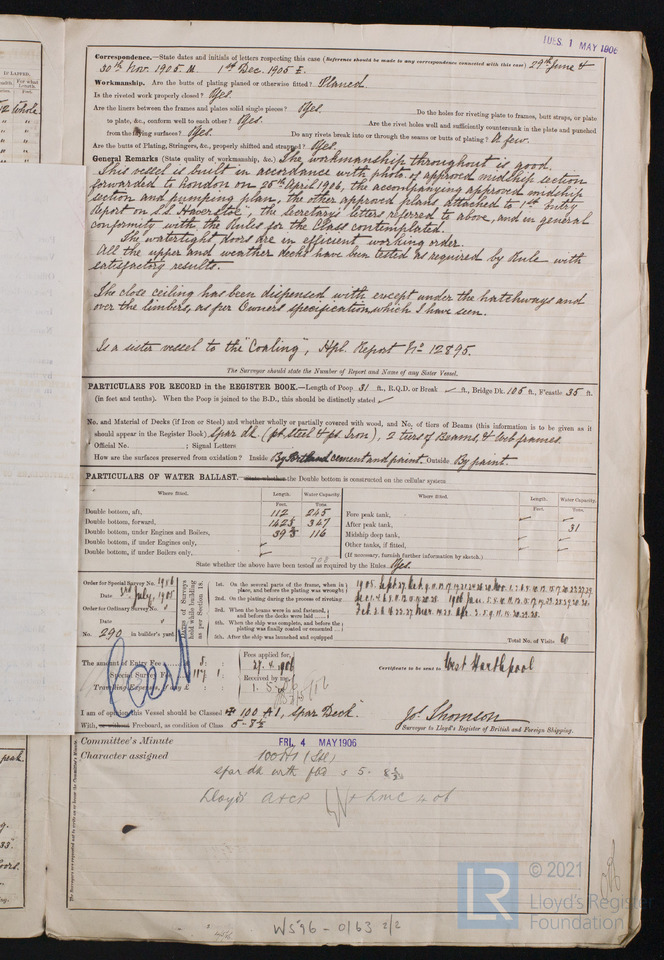 TUES. 1 MAY 1906
Correspondence.—State dates and initials of letters respecting this case (Reference should be made to any correspondence connected with this case) 29th June 4
30th Nov. 1905 M. 1st Dec. 1905 E.
Workmanship. Are the butts of plating planed or otherwise fitted? Planed
Is the riveted work properly closed? Yes.
Are the liners between the frames and plates solid single pieces? Yes. Do the holes for riveting plate to frames, butt straps, or plate
to plate, &c., conform well to each other? Yes. Are the rivet holes well and sufficiently countersunk in the plate and punched
from the faying surfaces? Yes. Do any rivets break into or through the seams or butts of plating? A few.
Are the butts of Plating, Stringers, &c., properly shifted and strapped? Yes.
General Remarks (State quality of workmanship, &c.) The workmanship throughout is good.
This vessel is built in accordance with photo of approved midship section
forwarded to London on 26th April 1906, the accompanying approved midship
section and pumping plan, the other approved plans attached to 1st Entry
Report on S.S. Haverstoe", the Secretary's letters referred to above, and in general
conformity with the Rules for the Class contemplated.
The watertight doors are in efficient working order.
All the upper and weather decks have been tested as required by Rule with
satisfactory results.
The close ceiling has been dispensed with except under the hatchways and
over the limbers, as per Owners specification, which I have seen.
Is a sister vessel to the "Coaling", Hpl. Report No 12895.
The Surveyor should state the Number of Report and Name of any Sister Vessel.
PARTICULARS FOR RECORD in the REGISTER BOOK.—Length of Poop 31 ft., R.Q.D. or Break ft., Bridge Dk. 106 ft., F'castle 35 ft.
(in feet and tenths). When the Poop is joined to the B.D., this should be distinctly stated
No. and Material of Decks (if Iron or Steel) and whether wholly or partially covered with wood, and No. of tiers of Beams (this information is to be given as it
should appear in the Register Book) Spar dk (pt. Steel & pt. Iron), 2 tiers of Beams, & Web frames.
Official No. ; Signal Letters
How are the surfaces preserved from oxidation? Inside By Portland cement and paint. Outside By paint.
PARTICULARS OF WATER BALLAST.—State whether the Double bottom is constructed on the cellular system
Where fitted. Length. Water Capacity. Where fitted. Length. Water Capacity.
Feet. Tons. Feet. Tons.
Double bottom, aft, 112 245 Fore peak tank,
Double bottom, forward, 142.5 347 After peak tank, 31
Double bottom, under Engines and Boilers, 39.5 116 Midship deep tank,
Double bottom, if under Engines only, Other tanks, if fitted,
Double bottom, if under Boilers only, (If necessary, furnish further information by sketch.)
708
State whether the above have been tested as required by the Rules Yes.
Order for Special Survey No. 1956
Date 3rd July, 1905.
Order for Ordinary Survey No.
Date
No. 290 in builder's yard.
Dates of Surveys held while building as per Section 18.
1st. On the several parts of the frame, when in place, and before the plating was wrought
2nd. On the plating during the process of riveting
3rd. When the beams were in and fastened, and before the decks were laid
4th. When the ship was complete, and before the plating was finally coated or cemented
5th. After the ship was launched and equipped
Total No. of Visits
The amount of Entry Fee 5:
Special Survey Fee
Travelling Expenses, if any £ :
Fees applied for, 27. 4. 1906
Received by me,
Certificate to be sent to West Hartlepool
I am of opinion this Vessel should be Classed 100 A1, Spar Deck.
With, or without Freeboard, as condition of Class 5-7½
Jos. Thomson
Surveyor to Lloyd's Register of British and Foreign Shipping.
Committee's Minute FRI. 4 MAY 1906
Character assigned 100A1 (Stl)
spar dk with fbd
Lloyd's A&CP + LMC 4 06
W596-0163 2/2
© 2021
LR
Lloyd's Register
Foundation